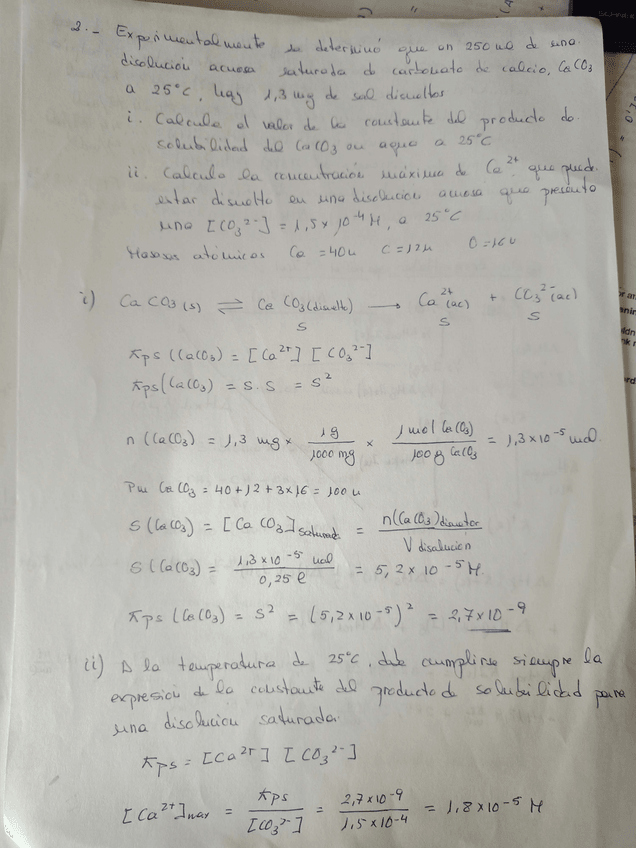 2.- Experimentalmente se determinó que en 250 ml de una
disolución acuosa saturada de carbonato de calcio, CaCO3
a 25°C, hay 1,3 mg de sal disueltos
i. Calcula el valor de la constante del producto de
solubilidad del CaCO3 en agua a 25°C
ii. Calcula la concentración máxima de Ca2+ que puede
estar disuelto en una disolución acuosa que presenta
una [CO3 2-] = 1,5 x 10^-4 M, a 25°C
Masas atómicas Ca = 40u C = 12u O = 16u
i) CaCO3 (s) ⇌ CaCO3 (disuelto) → Ca2+ (ac) + CO3 2- (ac)
s s s
Kps (CaCO3) = [Ca2+] [CO3 2-]
Kps (CaCO3) = s.s = s^2
n (CaCO3) = 1,3 mg x 1g/1000 mg x 1 mol CaCO3/100 g CaCO3 = 1,3 x 10^-5 mol
Pm CaCO3 = 40 + 12 + 3x16 = 100 u
s (CaCO3) = [CaCO3] saturada = n(CaCO3) disueltos / V disolución
s (CaCO3) = 1,3 x 10^-5 mol / 0,25 l = 5,2 x 10^-5 M
Kps (CaCO3) = s^2 = (5,2 x 10^-5)^2 = 2,7 x 10^-9
ii) A la temperatura de 25°C, debe cumplirse siempre la
expresión de la constante del producto de solubilidad para
una disolución saturada
Kps = [Ca2+] [CO3 2-]
[Ca2+] max = Kps / [CO3 2-] = 2,7 x 10^-9 / 1,5 x 10^-4 = 1,8 x 10^-5 M